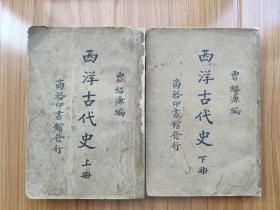 曹紹濂編
西洋古代史 上冊
商務印書館發行
曹紹濂編
西洋古代史 下冊
商務印書館發行